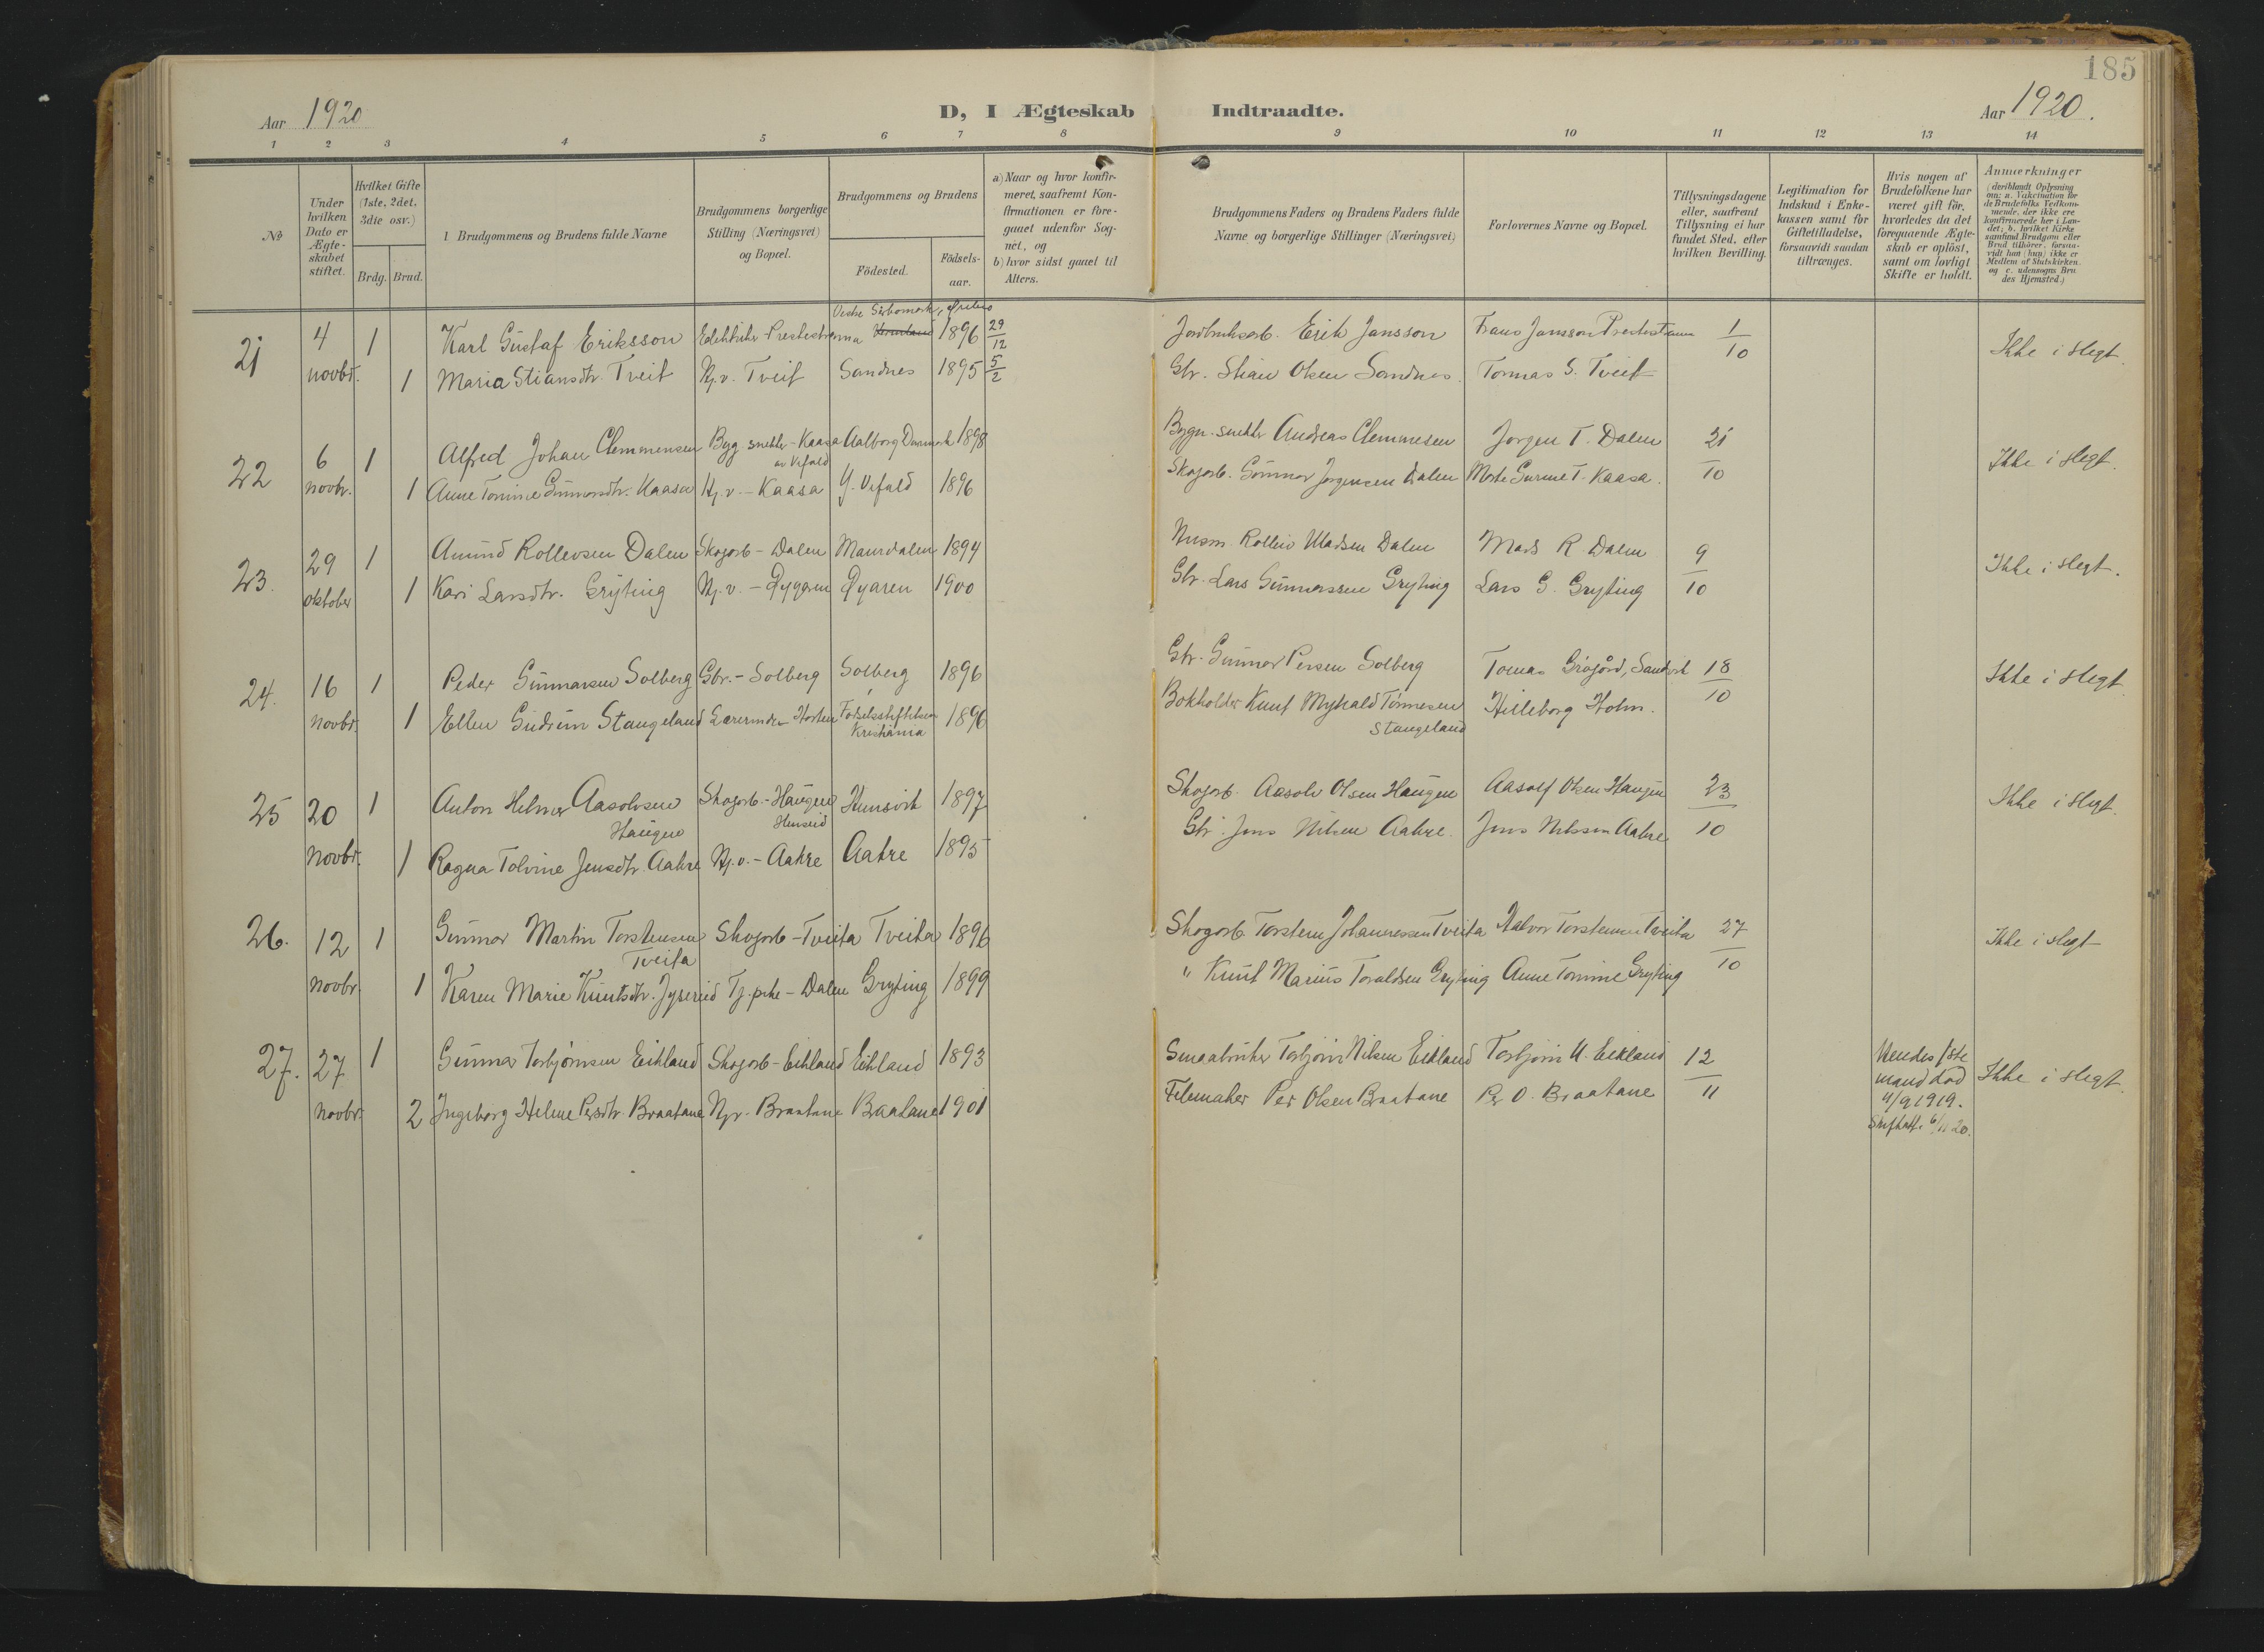 185
Aar 1920
D, I Ægteskab Indtraadte.
Aar 1920.
1 2 3 4 5 6 7 8 9 10 11 12 13 14
№
Under hvilken Dato er Ægte-skabet stiftet.
Hvilket Gifte (1ste, 2det, 3die osv.)
Brdg. Brud.
Brudgommens og Brudens fulde Navne
Brudgommens borgerlige Stilling (Næringsvei) og Bopæl.
Brudgommens og Brudens
Födested.
Födsels-aar.
a) Naar og hvor konfir-meret, saafremt Kon-firmationen er fore-gaaet udenfor Sog-net, og
b) hvor sidst gaaet til Alters.
Brudgommens Faders og Brudens Faders fulde Navne og borgerlige Stillinger (Næringsvei)
Forlovernes Navne og Bopæl.
Tillysningsdagene eller, saafremt Tillysning ei har fundet Sted, efter hvilken Bevilling.
Legitimation for Indskud i Enke-kassen samt for Giftetilladelse, forsaavidt saadan tiltrænges.
Hvis nogen af Brudefolkene har været gift för, hvorledes da det foregaaende Ægte-skab er oplöst, samt om lovligt Skifte er holdt.
Anmærkninger
(deriblandt Oplysning om: a. Vakcination for de Brudefolks Vedkom-mende, der ikke ere konfirmerede her i Lan-det; b. hvilket Kirke-samfund Brudgom eller Brud tilhörer, forsaa-vidt han (hun) ikke er Medlem af Statskirken, og c. udensogns Bru-des Hjemsted.)
21 4 1 Karl Gustaf Eriksson 1896 29/12 Erik Jansson Frans Jansson 1/10 Ikke i slegt.
novbr. 1 Maria Stiansdtr. Tveit Hj.v. Tveit Sandnes 1895 5/2 Gbr. Stian Olsen Sandnes. Tormas S. Tveit
22 6 1 Alfred Johan Clemmensen Byg snekker - Kaasa Aalborg Danmark 1898 Bygn. snekker Andreas Clemmesen Jorgen T. Dalen 21 Ikke i slegt.
novbr. 1 Anne Tomine Gunnarsdtr. Kaasa Hj.v. - Kaasa 1896 Skogarb. Gunnar Jørgensen Dalen T. Kaasa. 10
23. 29 1 Amund Rollevsen Dalen Skogarb - Dalen 1894 Husm. Rolleiv Madsen Dalen Mads R. Dalen 9 Ikke i slegt.
oktober 1 Kari Larsdtr. Gryting Hj.v. 1900 Gbr. Lars Gunnarssen Gryting Lars G. Gryting 10
24. 16 1 Peder Gunnarsen Solberg Gbr. - Solberg Solberg 1896 Gbr. Gunnar Persen Solberg Tomas 18 Ikke i slegt
novbr. 1 Ellen Gudrun Stangeland Lærerinde Fødselsstiftelsen 1896 Bokholder Knut Tønnesen Hilleborg Holm. 10
Kristiania Stangeland
25 20 1 Anton Helmer Aasolvsen Skogarb. - Haugen 1897 Skogarb. Aasolv Olsen Haugen Aasolf Olsen Haugen 23 Ikke i slegt.
Haugen Henseid Gbr. Jens Nilsen Aakre. Jens Nilssen Aakre 10
novbr. 1 Ragna Tolvine Jensdtr. Aakre Hj.v. - Aakre Aakre 1895
26. 12 1 Gunnar Martin Torstensen Skogarb - Tveita Tveita 1896 Skogarb. Torstein Johannessen Tveita Halvor Torstensen Tveita 27 Ikke i slegt
Tveita
novbr. 1 Karen Marie Knutsdtr. Tj.pike - Dalen Gryting 1899 " Knut Marius Toraldsen Gryting Anne Tomine Gryting 10
27. 27 1 Gunnar Torbjørnsen Eikland Skogarb - Eikland Eikland 1893 Smaabruker Torbjørn Nilsen Eikland Torbjørn N. Eikland 12 Hendes 1ste Ikke i slegt.
mand død
novbr. 2 Ingeborg Helene Persdtr. Braatane Hj.v. Braatane Braatane 1901 Filemaker Per Olsen Braatane Per O. Braatane 11 4/9 1919.
Skifteatt. 6/11 20.